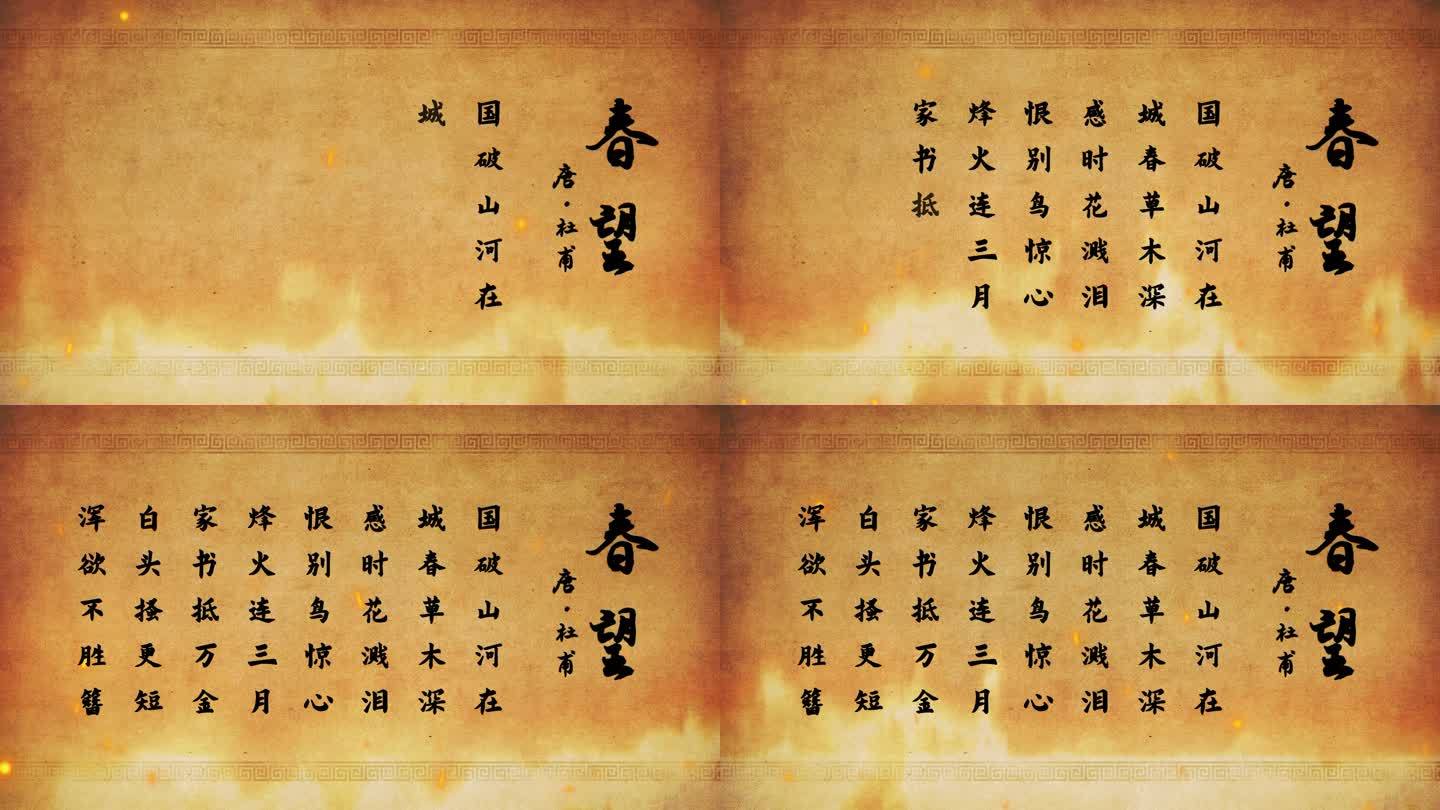 春望
唐·杜甫
国破山河在
城
春望
唐·杜甫
国破山河在
城春草木深
感时花溅泪
恨别鸟惊心
烽火连三月
家书抵
春望
唐·杜甫
国破山河在
城春草木深
感时花溅泪
恨别鸟惊心
烽火连三月
家书抵万金
白头搔更短
浑欲不胜簪
春望
唐·杜甫
国破山河在
城春草木深
感时花溅泪
恨别鸟惊心
烽火连三月
家书抵万金
白头搔更短
浑欲不胜簪